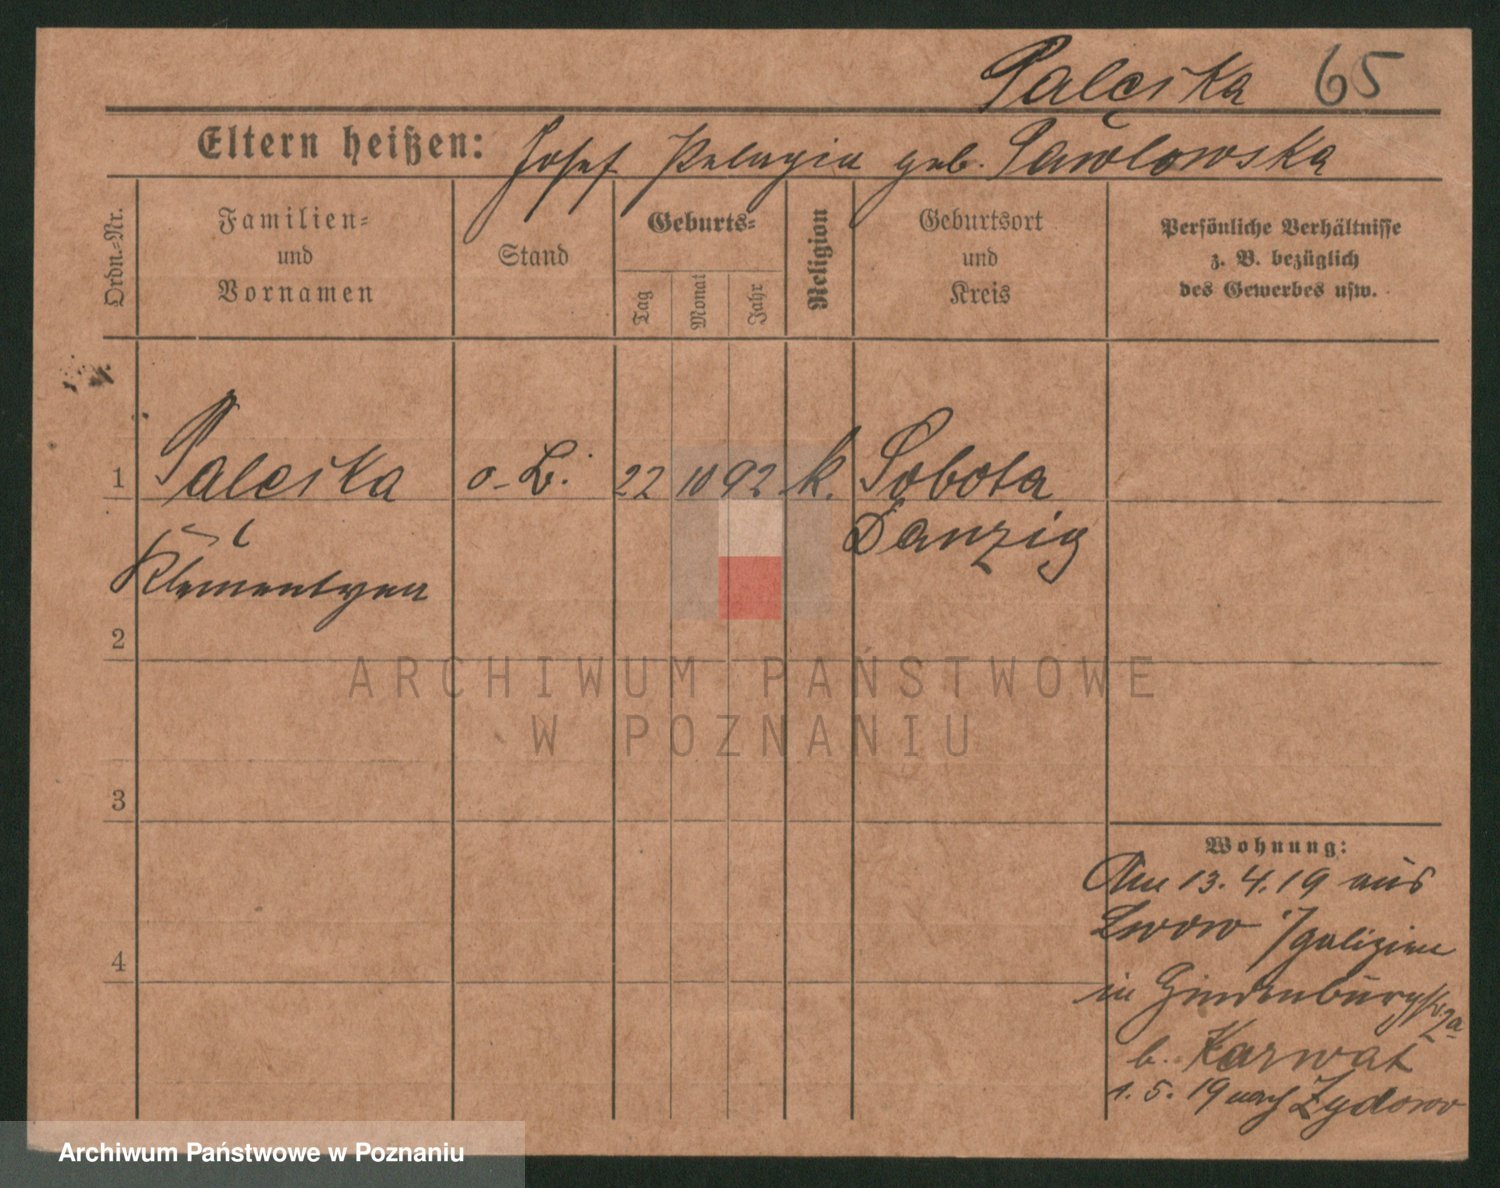 Palęcka 65
Eltern heißen: Josef Pelagia geb. Pawłowska
Ordn.=Nr.
Familien=
und
Vornamen
Stand
Geburts=
Tag
Monat
Jahr
Religion
Geburtsort
und
Kreis
Persönliche Verhältnisse
z. B. bezüglich
des Gewerbes usw.
1 Palęcka o. B. 22 10 92 k. Sobota
Danzig
Klementyna
2
3
4
Wohnung:
Am 13.4.19 aus
Lwow /galizien
in Hindenburgstr 2a
b. Karwat
1.5.19 nach Zydowo
ARCHIWUM PAŃSTWOWE
W POZNANIU
Archiwum Państwowe w Poznaniu